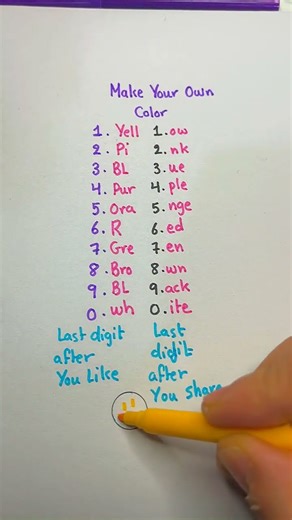 Make Your Own
Color
1. Yell 1. ow
2. Pi 2. nk
3. BL 3. ue
4. Pur 4. ple
5. Ora 5. nge
6. R 6. ed
7. Gre 7. en
8. Bro 8. wn
9. BL 9. ack
0. wh 0. ite
Last digit
after
You Like
Last
digit
after
You share